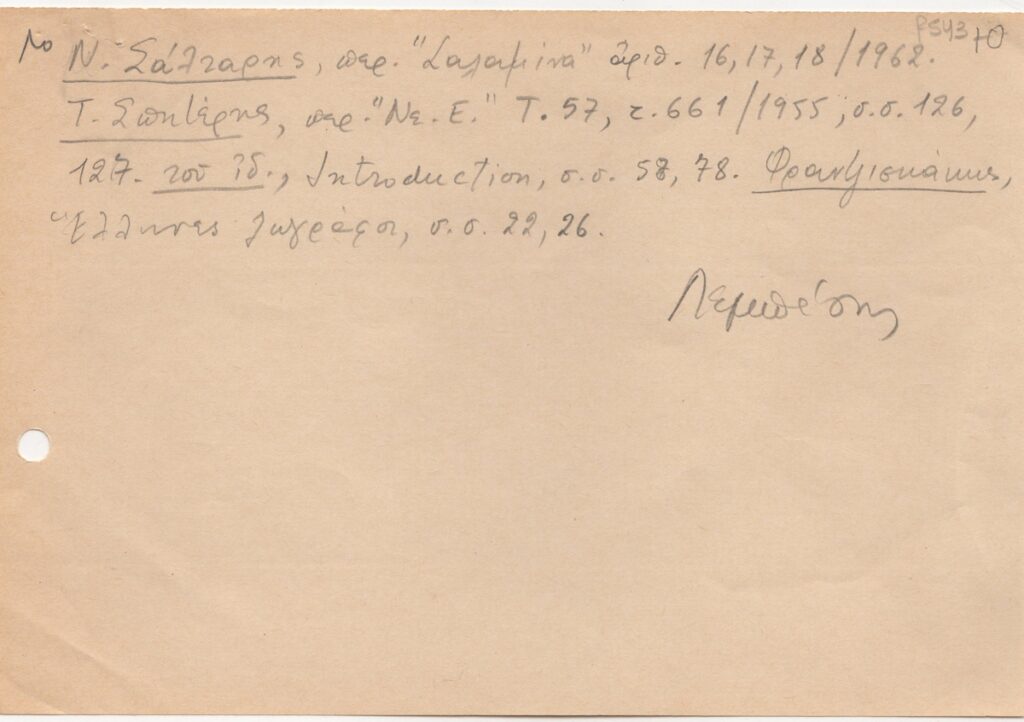 Ν. Σάλταρης, περ. "Σαλαμίνα" ἀριθ. 16, 17, 18/1962.
Τ. Σπητέρης, περ. "Νε. Ε." Τ. 57, τ. 661/1955, σ.σ. 126,
127. τοῦ ἰδ., Introduction, σ.σ. 58, 78. Φραντζισκάκης,
Ἕλληνες ζωγράφοι, σ.σ. 22, 26.
Λεμπέσης